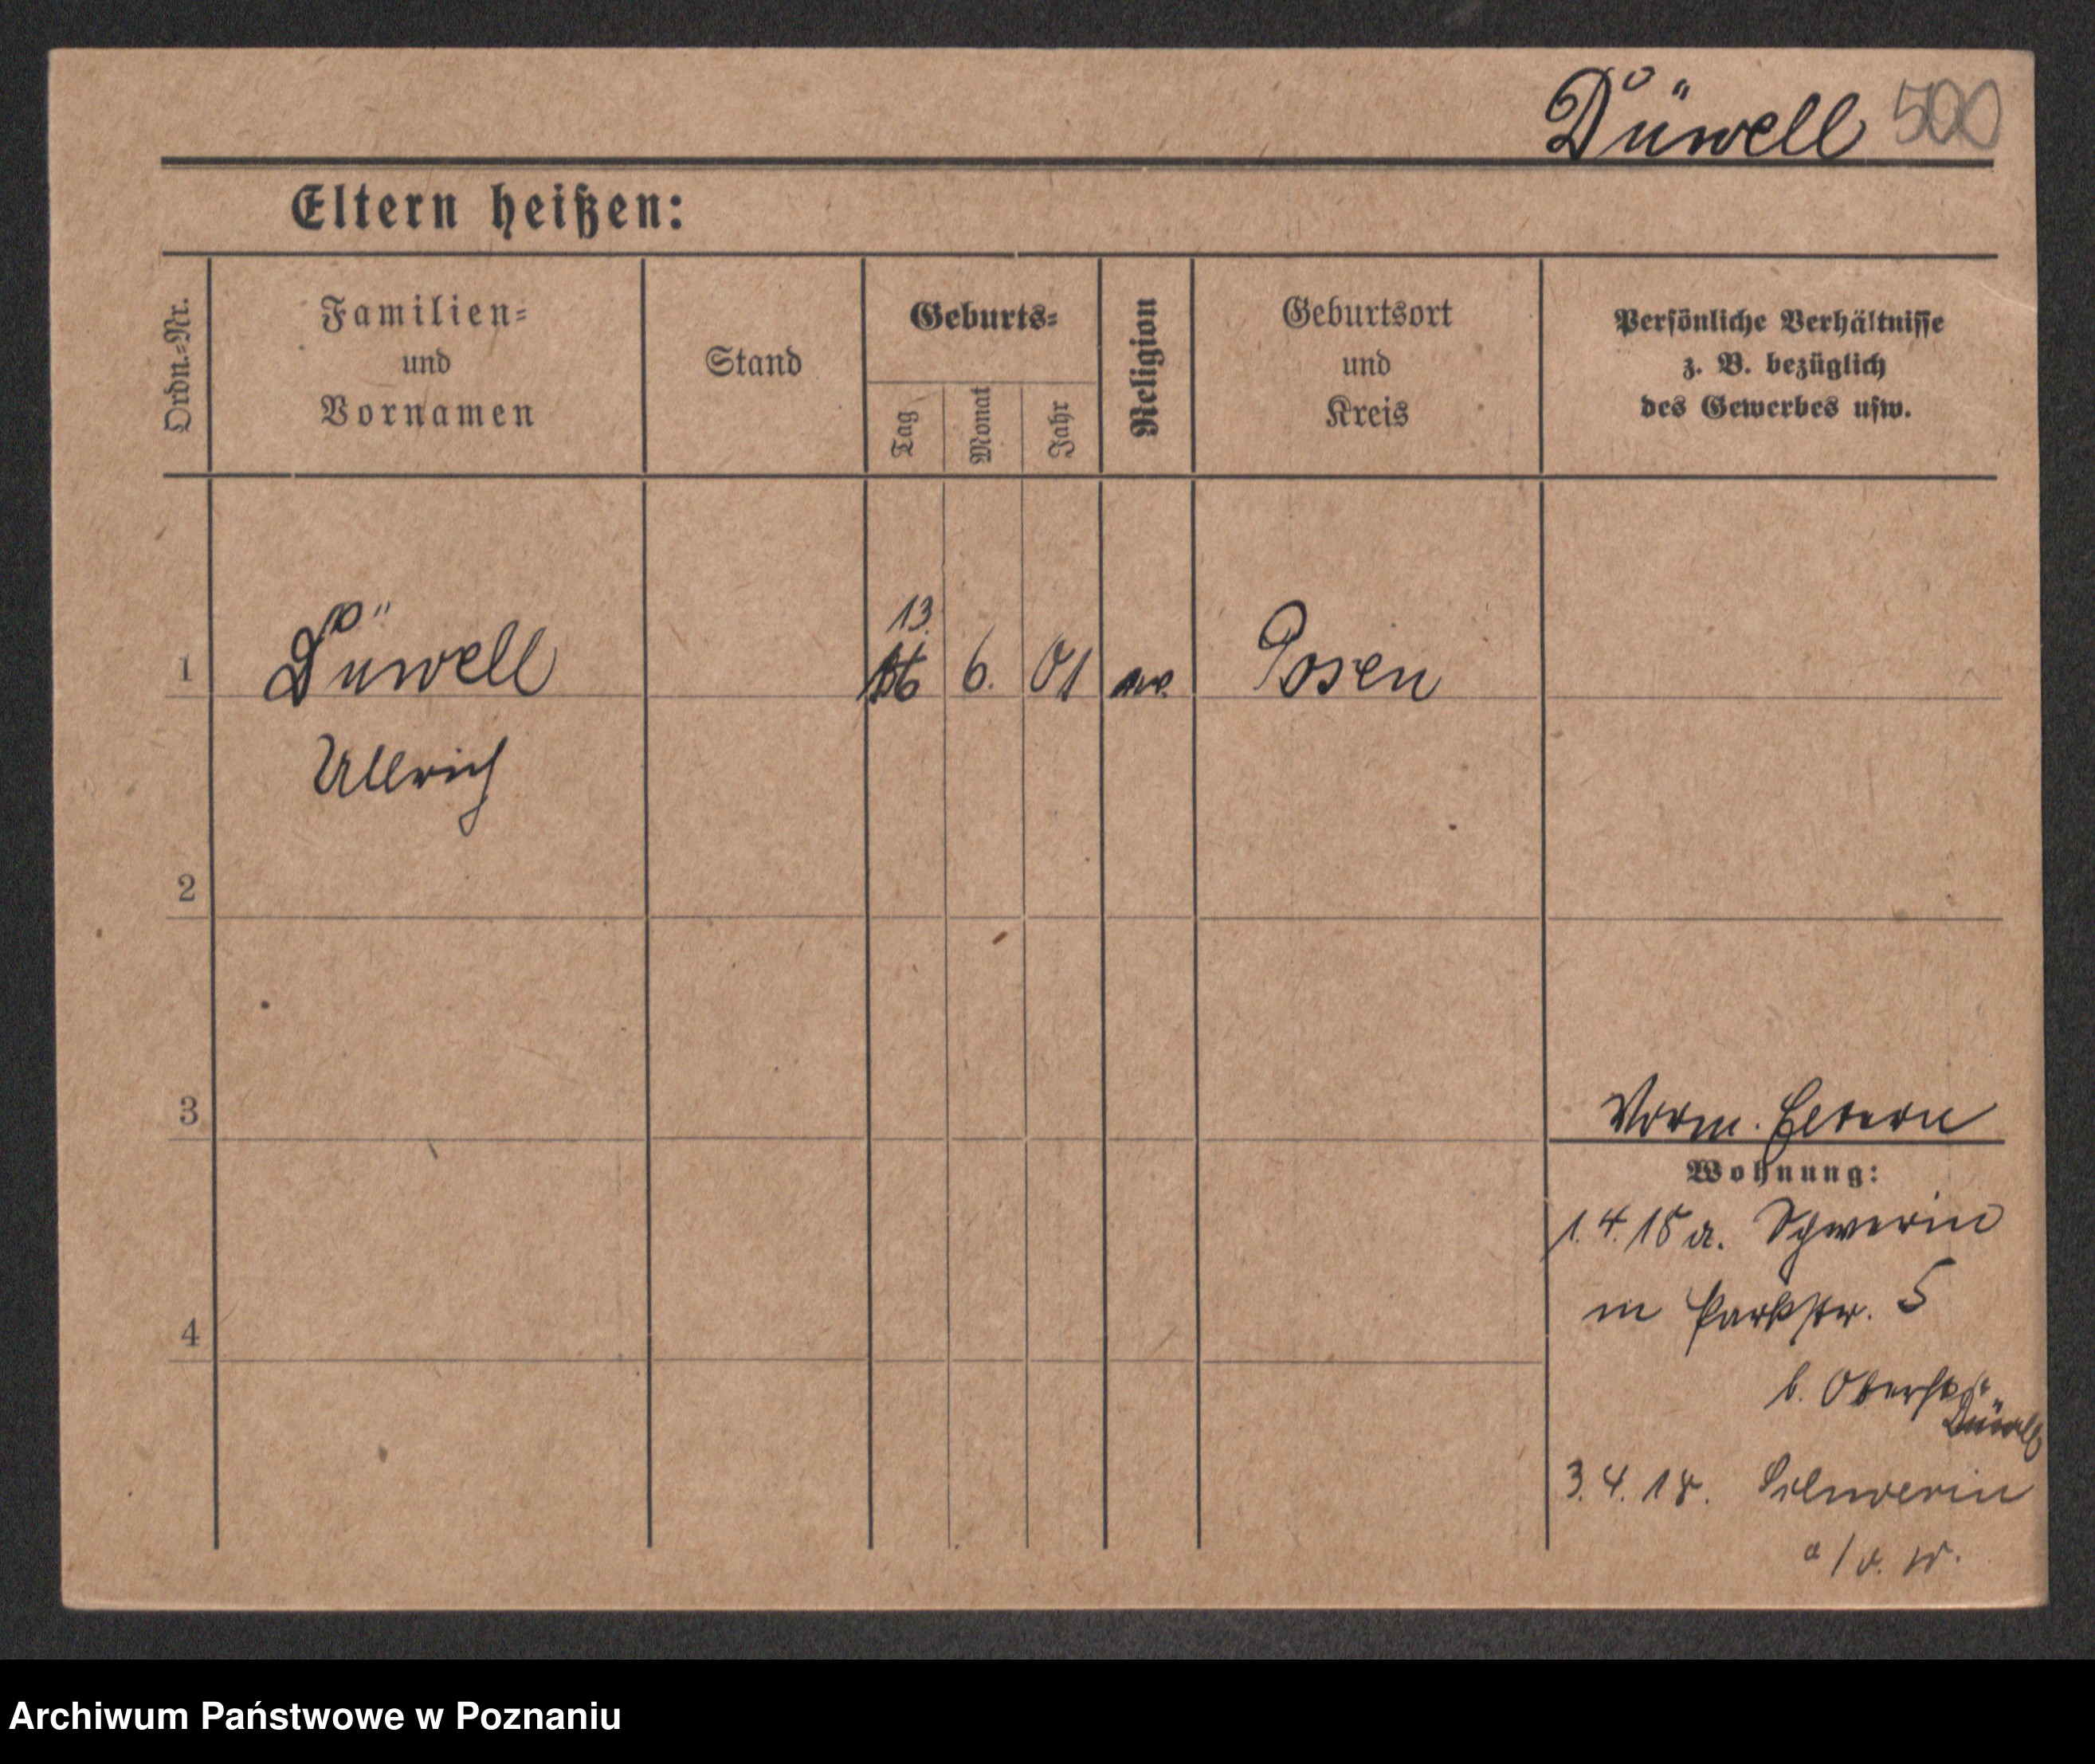 Düwell 500
Eltern heißen:
Ordn.-Nr.
Familien-
und
Vornamen
Stand
Geburts-
Tag
Monat
Jahr
Religion
Geburtsort
und
Kreis
Persönliche Verhältnisse
z. B. bezüglich
des Gewerbes usw.
1 Düwell 13. 6. 01 Posen
Ullrich
2
3
Vorm. Eltern
Wohnung:
4
1. 4. 15 a. Schwerin
in Parkstr. 5
b. Oberst
Düwell
3. 4. 18. Schwerin
a/d. W.
Archiwum Państwowe w Poznaniu